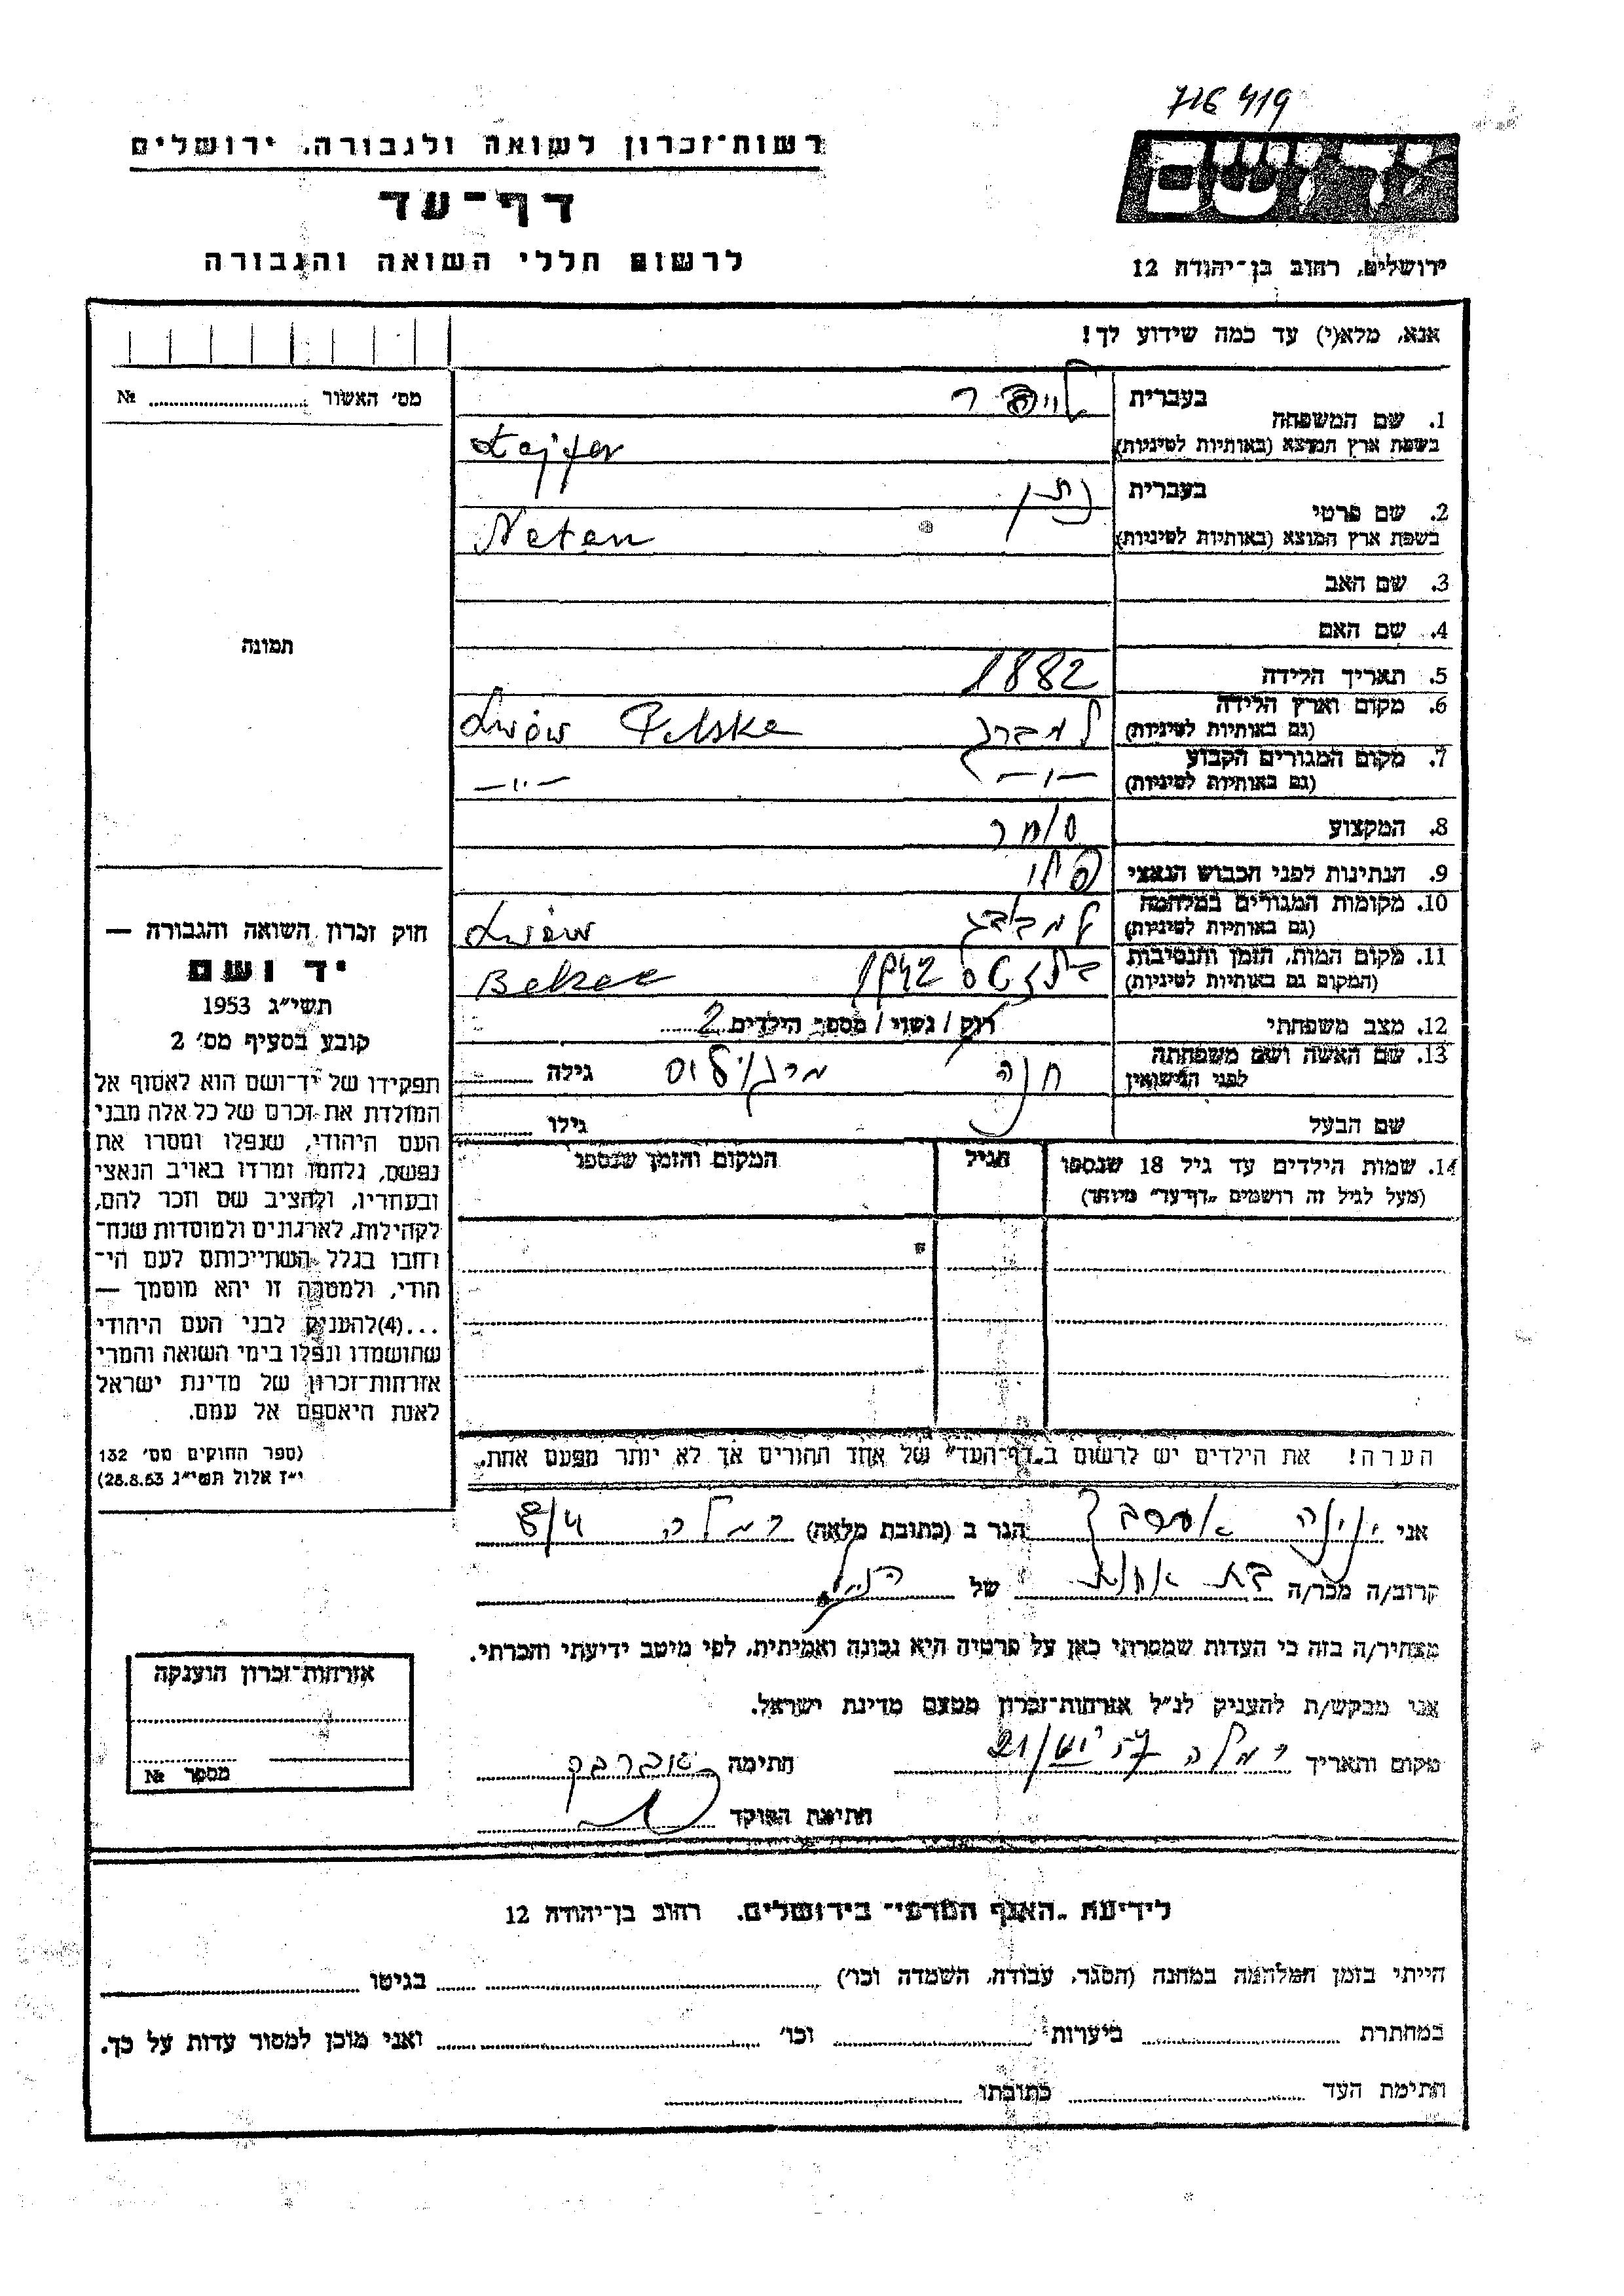 716419
רשות־זכרון לשואה ולגבורה, ירושלים
דף־עד
לרשום חללי השואה והגבורה
יד ושם
ירושלים, רחוב בן־יהודה 12
אנא, מלא(י) עד כמה שידוע לך!
מס׳ האשור № 
1. שם המשפחה בעברית
בשפת ארץ המוצא (באותיות לטיניות) Lajfer
2. שם פרטי בעברית נתן
בשפת ארץ המוצא (באותיות לטיניות) Naten
3. שם האב
4. שם האם
תמונה
5. תאריך הלידה 1882
6. מקום וארץ הלידה למברג Lwów Polska
(גם באותיות לטיניות)
7. מקום המגורים הקבוע —״— —״—
(גם באותיות לטיניות)
8. המקצוע סוחר
9. הנתינות לפני הכבוש הנאצי פולני
10. מקומות המגורים במלחמה למברג Lwów
(גם באותיות לטיניות)
11. מקום המות, הזמן והנסיבות 1942 Belzec
(המקום גם באותיות לטיניות)
12. מצב משפחתי רוק / נשוי / מספר הילדים 2
13. שם האשה ושם משפחתה חנה מרגוליס גילה
לפני הנישואין
שם הבעל גילו
14. שמות הילדים עד גיל 18 שנספו הגיל המקום והזמן שנספו
(מעל לגיל זה רושמים „דף־עד״ מיוחד)
חוק זכרון השואה והגבורה —
יד ושם
תשי״ג 1953
קובע בסעיף מס׳ 2
תפקידו של יד־ושם הוא לאסוף אל
המולדת את זכרם של כל אלה מבני
העם היהודי, שנפלו ומסרו את
נפשם, נלחמו ומרדו באויב הנאצי
ובעוזריו, ולהציב שם וזכר להם,
לקהילות, לארגונים ולמוסדות שנח־
רחבו בגלל השתייכותם לעם הי־
הודי, ולמטרה זו יהא מוסמך —
...(4)להעניק לבני העם היהודי
שהושמדו ונפלו בימי השואה והמרי
אזרחות־זכרון של מדינת ישראל
לאות היאספם אל עמם.
(ספר החוקים מס׳ 132
י״ז אלול תשי״ג 28.8.53)
הערה! את הילדים יש לרשום ב„דף־העד״ של אחד ההורים אך לא יותר מפעם אחת.
אני הגר ב (כתובת מלאה) רמלה
קרוב/ה מכר/ה בת אחות של הנ״ל
מצהיר/ה בזה כי העדות שמסרתי כאן על פרטיה היא נכונה ואמיתית, לפי מיטב ידיעתי והכרתי.
אני מבקש/ת להעניק לנ״ל אזרחות־זכרון מטעם מדינת ישראל.
מקום ותאריך רמלה חתימה
חתימת הפוקד
אזרחות־זכרון הוענקה
מספר №
לידיעת „האגף המדעי״ בירושלים, רחוב בן־יהודה 12
הייתי בזמן המלחמה במחנה (הסגר, עבודה, השמדה וכו׳) בגיטו
במחתרת ביערות וכו׳ ואני מוכן למסור עדות על כך.
חתימת העד כתובתו